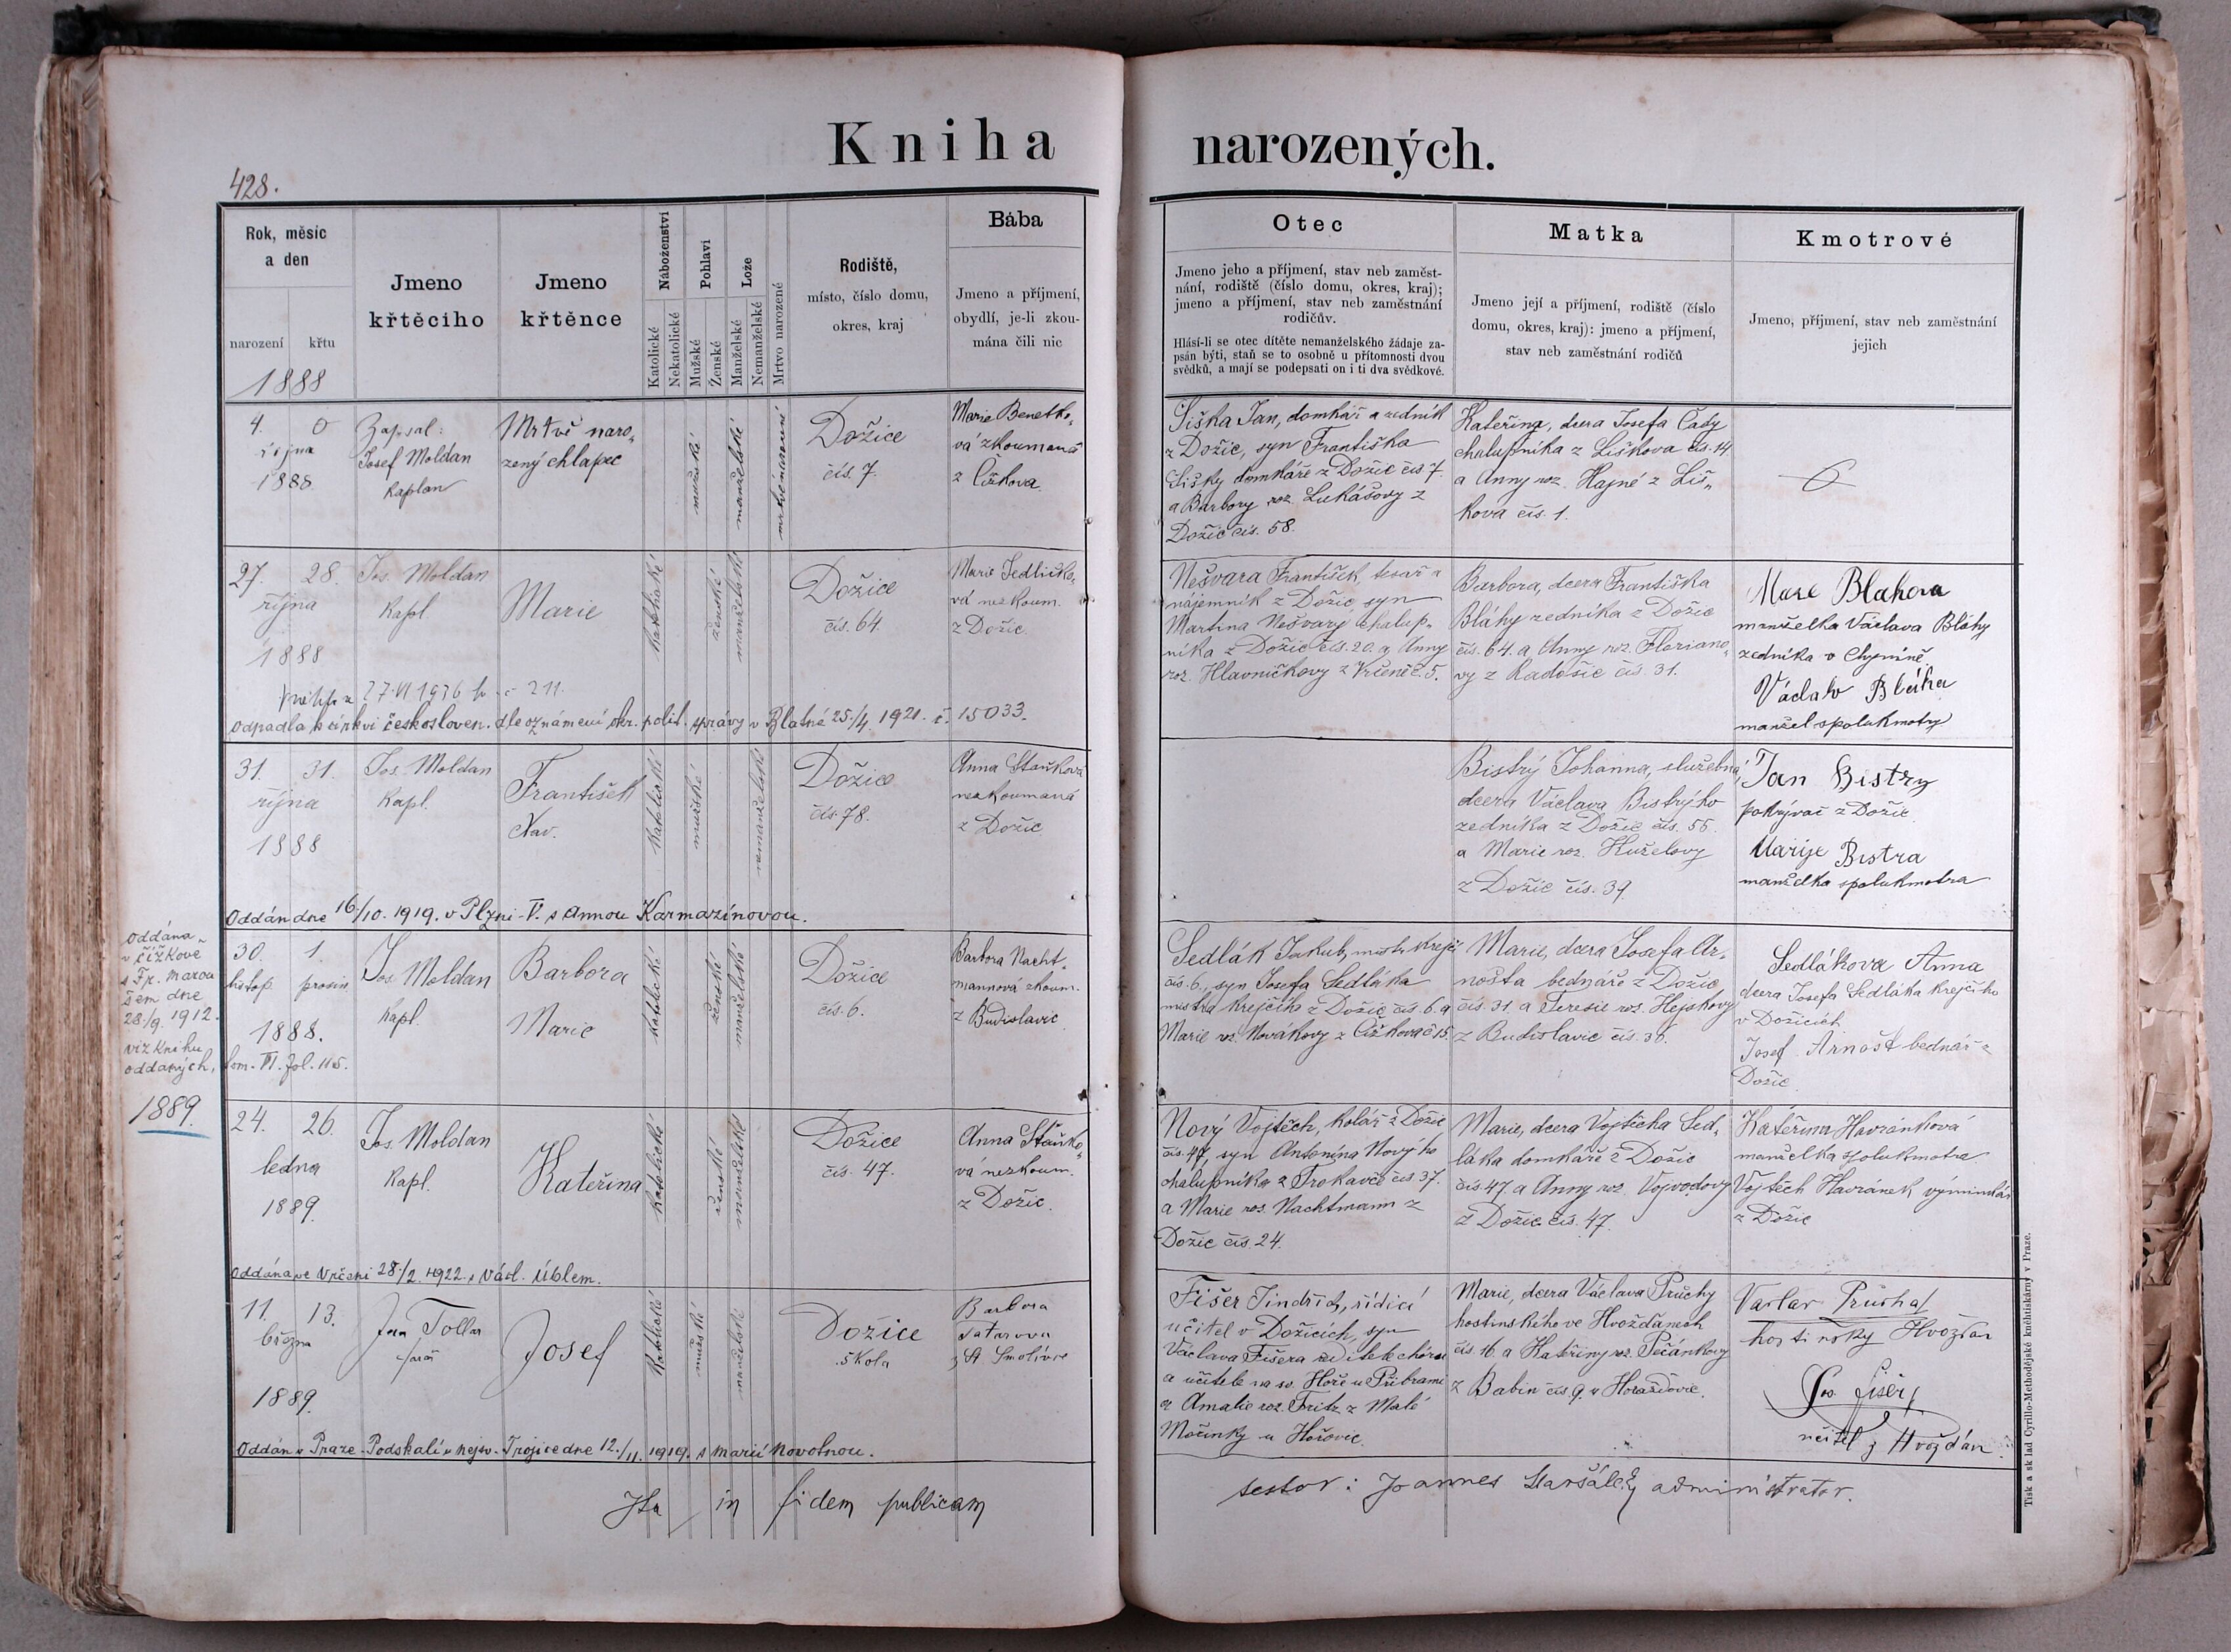 Kniha narozených.
428.
Rok, měsíc
a den
narození křtu
1888
Jmeno
křtěcího
Jmeno
křtěnce
Náboženství
Katolické
Nekatolické
Pohlaví
Mužské
Ženské
Lože
Manželské
Nemanželské
Mrtvo narozené
Rodiště,
místo, číslo domu,
okres, kraj
Bába
Jmeno a příjmení,
obydlí, je-li zkou-
mána čili nic
Otec
Jmeno jeho a příjmení, stav neb zaměst-
nání, rodiště (číslo domu, okres, kraj);
jmeno a příjmení, stav neb zaměstnání
rodičův.
Hlásí-li se otec dítěte nemanželského žádaje za-
psán býti, staň se to osobně u přítomnosti dvou
svědků, a mají se podepsati on i ti dva svědkové.
Matka
Jmeno její a příjmení, rodiště (číslo
domu, okres, kraj): jmeno a příjmení,
stav neb zaměstnání rodičů
Kmotrové
Jmeno, příjmení, stav neb zaměstnání
jejich
4. 0
října
1888
Zapsal:
Josef Moldan
kaplan
Mrtvě naro-
zený chlapec
mužské
manželské
mrtvě narozené
Dožice
čís. 7.
Marie Benetko-
vá zkoumaná
z Čížkova
Šiška Jan, domkář a zedník
z Dožic, syn Františka
Šišky domkáře z Dožic čís. 7.
a Barbory roz. Lukášovy z
Dožic čís. 58.
Kateřina, dcera Josefa Čady
chalupníka z Liškova čís. 14
a Anny roz. Hajné z Liš-
kova čís. 1.
27. 28.
října
1888
Jos. Moldan
kapl.
Marie
katolické
ženské
manželské
Dožice
čís. 64.
Marie Jedličko-
vá nezkoum.
z Dožic
Nešvara František, tesař a
nájemník z Dožic, syn
Martina Nešvary chalup-
níka z Dožic čís. 20. a Anny
roz. Hlavničkovy z Vrčeně č. 5.
Barbora, dcera Františka
Bláhy zedníka z Dožic
čís. 64. a Anny roz. Floriano-
vy z Radošic čís. 31.
Mare Blahova
manželka Václava Bláhy
zedníka v Chynině.
Václav Bláha
manžel spolukmotry
27.VI 1936 211.
Odpadla k církvi českosloven. dle oznámení okr. polit. správy v Blatné 25./4. 1921. č. 15033.
31. 31.
října
1888
Jos. Moldan
kapl.
František
Xav.
katolické
mužské
nemanželské
Dožice
čís. 78.
Anna Staňková
nezkoumaná
z Dožic
Bistrý Johanna, služebná,
dcera Václava Bistrýho
zedníka z Dožic čís. 55.
a Marie roz. Kuželovy
z Dožic čís. 39
Jan Bistry
pokrývač z Dožic
Marije Bistra
manželka spolukmotra
Oddán dne 16/10. 1919. v Plzni-V. s Annou Karmazínovou.
Oddána
v Čížkově
s Fr. Marou
šem dne
28./9. 1912.
viz knihu
oddaných,
30. 1.
listop. prosin
1888.
tom. VI. fol. 115.
Jos. Moldan
kapl.
Barbora
Marie
katolické
ženské
manželské
Dožice
čís. 6.
Barbora Nacht-
mannova zkoum.
z Budislavic
Sedlák Jakub, mistr krejčí
čís. 6., syn Josefa Sedláka
mistra krejčího z Dožic čís. 6. a
Marie roz. Novákovy z Čížkova č 15.
Marie, dcera Josefa Ar-
nošta bednáře z Dožic
čís. 31. a Teresie roz. Hejskovy
z Budislavic čís. 36.
Sedlákova Anna
dcera Josefa Sedláka krejčího
v Dožicích.
Josef Arnošt bednář z
Dožic.
1889.
24. 26.
ledna
1889.
Jos. Moldan
kapl.
Kateřina
katolické
ženské
manželské
Dožice
čís. 47.
Anna Staňko-
vá nezkoum.
z Dožic.
Nový Vojtěch, kolář z Dožic
čís. 47, syn Antonína Nového
chalupníka z Trokavce čís 37.
a Marie roz. Nachtmann z
Dožic čís. 24.
Marie, dcera Vojtěcha Sed-
láka domkáře z Dožic
čís. 47. a Anny roz. Vojvodovy
z Dožic čís. 47.
Kateřina Havránková
manželka spolukmotra
Vojtěch Havránek výminkář
z Dožic
Oddána ve Vrčeni 28./2. 1922. s Václ. Úblem.
11. 13.
března
1889.
Jan Tollar
farář
Josef
Katolické
mužské
manželské
Dožice
škola
Barbora
Tatarova
z St. Smolivce
Fišer Jindřich, řídící
učitel v Dožicích, syn
Václava Fišera ředitele chóru
a učitele na sv. Hoře u Příbrami
a Amalie roz. Fritz z Malé
Mořinky u Hořovic.
Marie, dcera Václava Průchy
hostinského ve Hvožďanech
čís. 16. a Kateřiny roz. Pečánkovy
z Babin čís. 9. u Horažďovic.
Vaclav Průcha
hostinsky Hvozdan
Jos. Fišer,
učitel z Hvoždan.
Oddán v Praze-Podskalí u nejsv. Trojice dne 12./11. 1919. s Marií Novotnou.
Ita in fidem publicam
testor: Joannes Maršálek, administrator.
Tisk a sklad Cyrillo-Methodějské knihtiskárny v Praze.